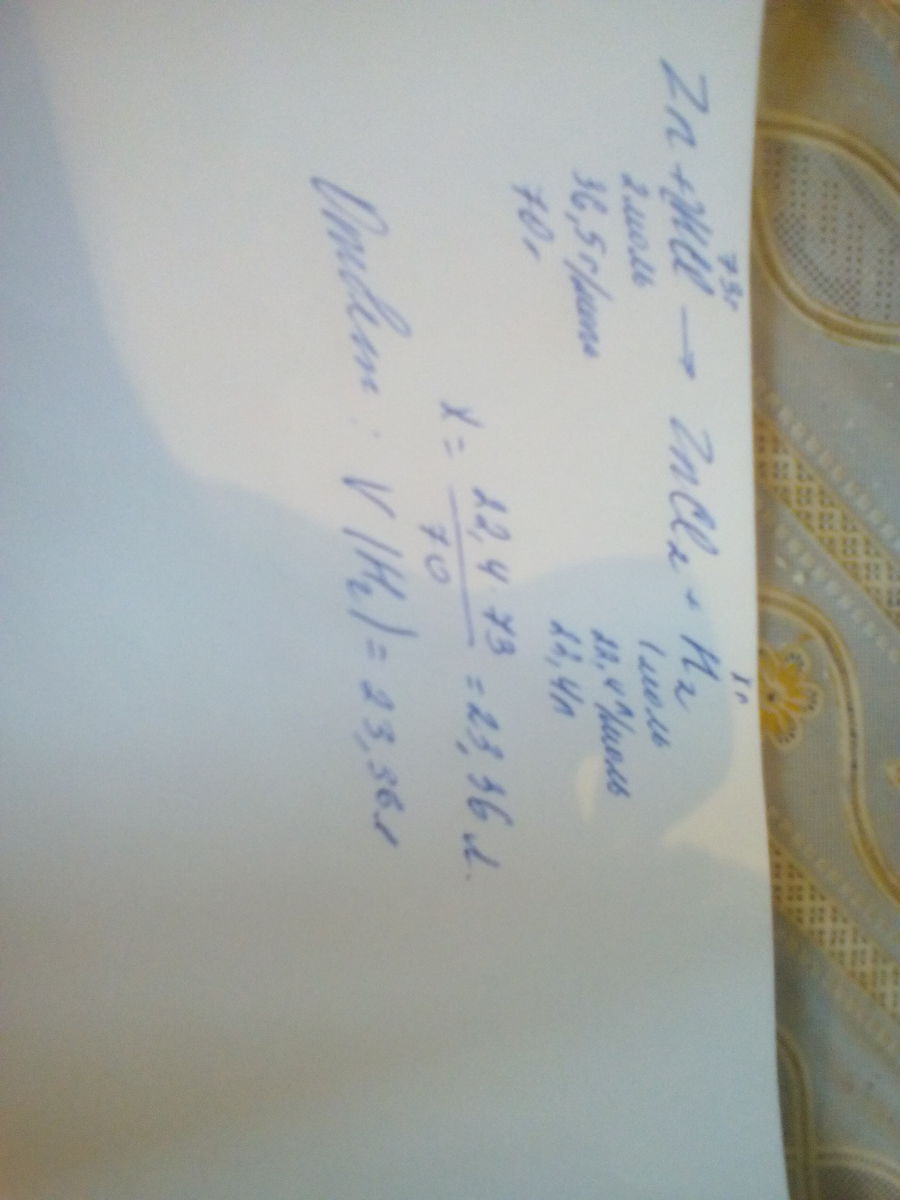 73г                                  X л
Zn + 2HCl → ZnCl₂ + H₂
2моль                          1моль
36,5г/моль                  22,4л/моль
70г                              22,4л
X = 22,4·73/70 = 23,36 л.
Ответ: V(H₂) = 23,36л